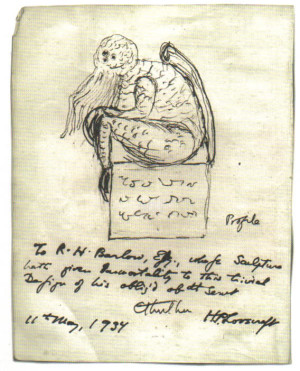 Profile
To R. H. Barlow, Esq., whose Sculpture
hath given Immortality to this trivial
Design of his oblig'd obt Servt
Cthulhu
11th May, 1934 HPLovecraft